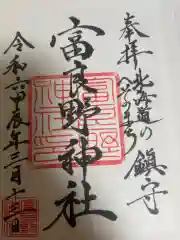 奉拝 北海道の
へそのまち 鎮守
富良野神社
令和六甲辰年三月十三日